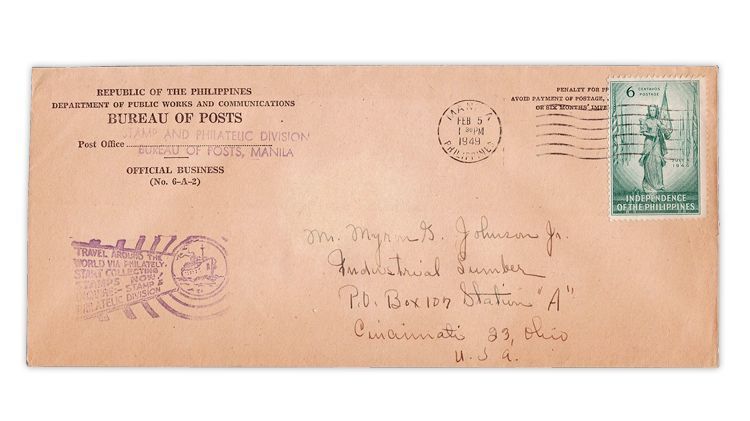 REPUBLIC OF THE PHILIPPINES
DEPARTMENT OF PUBLIC WORKS AND COMMUNICATIONS
BUREAU OF POSTS
STAMP AND PHILATELIC DIVISION
Post Office
BUREAU OF POSTS, MANILA
OFFICIAL BUSINESS
(No. 6-A-2)
MANILA
FEB 5
1 30 PM
1949
PHILIPPINES
PENALTY FOR
AVOID PAYMENT OF POSTAGE,
OR SIX MONTHS'
6 CENTAVOS
POSTAGE
JULY 4
1946
INDEPENDENCE
OF THE PHILIPPINES
TRAVEL AROUND THE
WORLD VIA PHILATELY-
START COLLECTING
STAMPS NOW!
INQUIRE - STAMP &
PHILATELIC DIVISION
Mr. Myron G. Johnson Jr.
Industrial Lumber
P.O. Box 107 Station "A"
Cincinnati 23, Ohio
U.S.A.